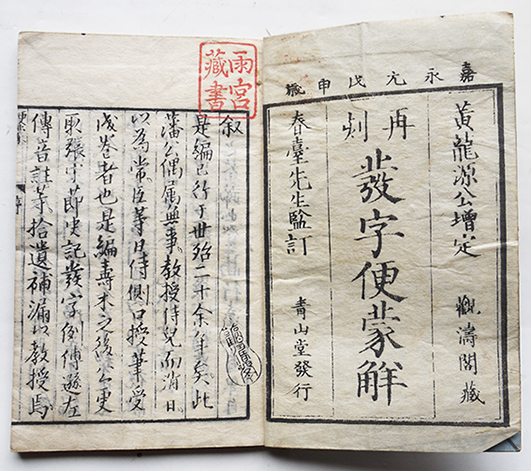 嘉永元戊申鐫
黄龍源公增定　觀濤閣藏
再刻
發字便蒙解
春臺先生監訂　青山堂發行
雨宮藏書
叙
是編已行于世殆二十余年矣此
藩公偶属無事教授侍兒而消日
以為常臣等日侍側口授筆受
成卷者也是編壽木之後公更
取張守節史記發字例傅遜左
傳音註等拾遺補漏以教授焉